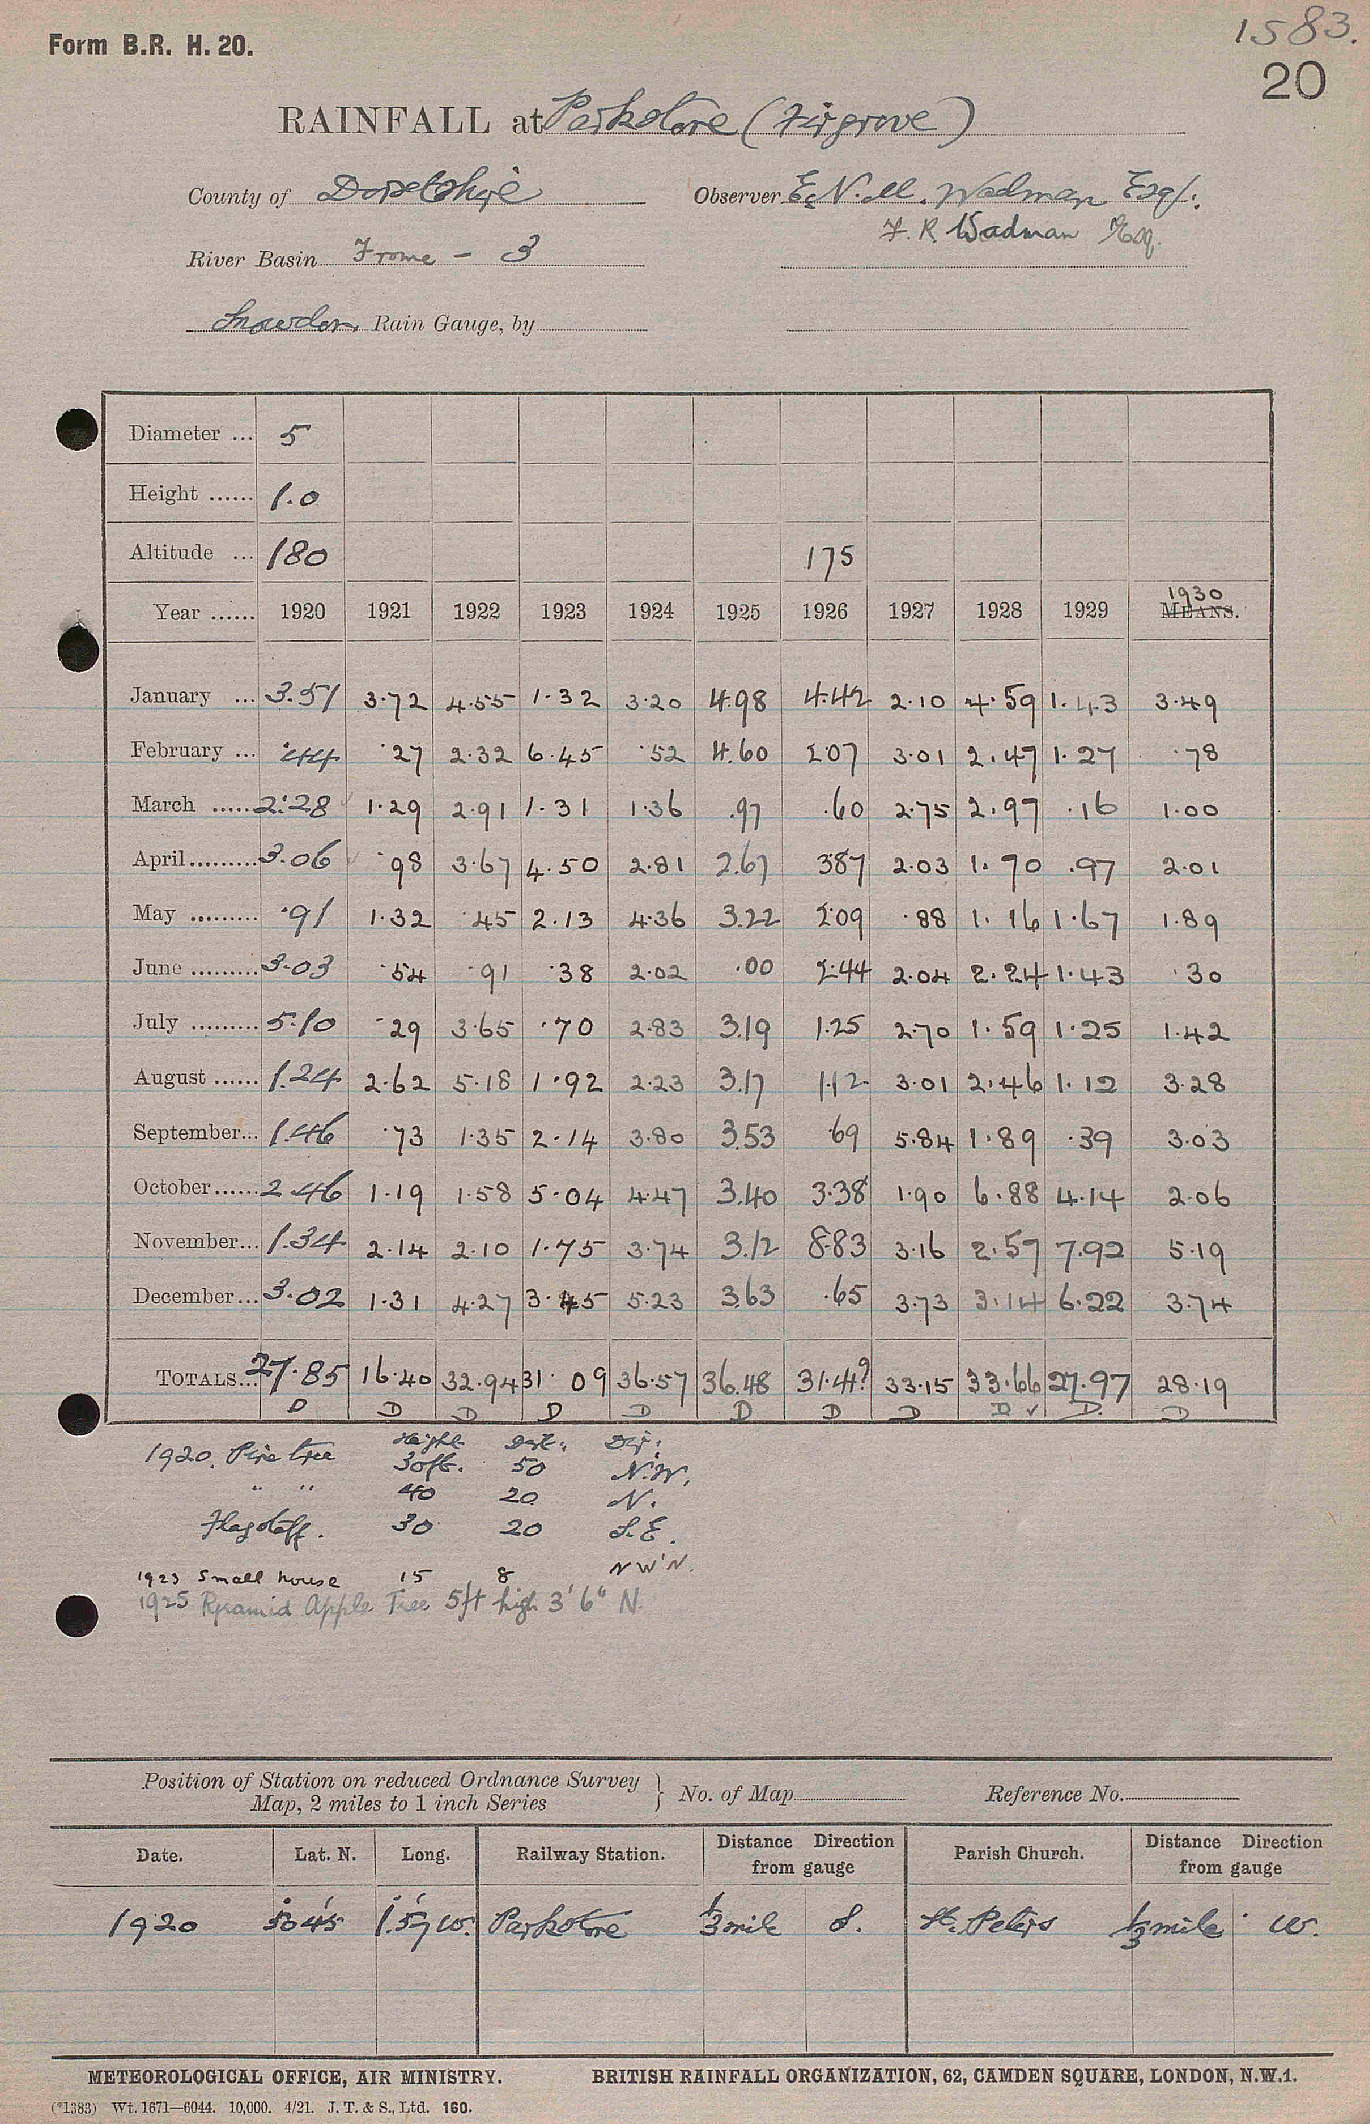 Form B.R. H. 20.
1583.
20
RAINFALL at Parkstone (Firgrove)
County of Dorsetshire Observer E. N. M. Wadman Esq.
F. R. Wadman Esq.
River Basin Frome - 3
Snowdon Rain Gauge, by
Diameter ... 5
Height ...... 1.0
Altitude ... 180 175
Year ...... 1920 1921 1922 1923 1924 1925 1926 1927 1928 1929 1930 MEANS.
January ... 3.51 3.72 4.55 1.32 3.20 4.98 4.42 2.10 4.59 1.43 3.49
February ... .44 .27 2.32 6.45 .52 4.60 2.07 3.01 2.47 1.27 .78
March ...... 2.28 1.29 2.91 1.31 1.36 .97 .60 2.75 2.97 .16 1.00
April......... 3.06 .98 3.67 4.50 2.81 2.67 3.87 2.03 1.70 .97 2.01
May ......... .91 1.32 .45 2.13 4.36 3.22 2.09 .88 1.16 1.67 1.89
June ......... 3.03 .54 .91 .38 2.02 .00 2.44 2.04 2.24 1.43 .30
July ......... 5.10 .29 3.65 .70 2.83 3.19 1.25 2.70 1.59 1.25 1.42
August ...... 1.24 2.62 5.18 1.92 2.23 3.17 1.12 3.01 2.46 1.12 3.28
September... 1.46 .73 1.35 2.14 3.80 3.53 .69 5.84 1.89 .39 3.03
October...... 2.46 1.19 1.58 5.04 4.47 3.40 3.38 1.90 6.88 4.14 2.06
November... 1.34 2.14 2.10 1.75 3.74 3.12 8.83 3.16 2.57 7.92 5.19
December... 3.02 1.31 4.27 3.45 5.23 3.63 .65 3.73 3.14 6.22 3.74
TOTALS... 27.85 16.40 32.94 31.09 36.57 36.48 31.41? 33.15 33.66 27.97 28.19
D D D D D D D D D ✓ D. D
Height Dist. Dir.
1920. Pine tree 30ft. 50 N.W.
" " 40 20 N.
Flagstaff. 30 20 S.E.
1923 Small house 15 8 NW'N.
1925 Pyramid Apple Tree 5ft high 3' 6" N.
Position of Station on reduced Ordnance Survey Map, 2 miles to 1 inch Series } No. of Map Reference No.
Date. Lat. N. Long. Railway Station. Distance Direction from gauge Parish Church. Distance Direction from gauge
1920 50° 45' 1° 57' W. Parkstone 1/3 mile S. St. Peters 1/3 mile W.
METEOROLOGICAL OFFICE, AIR MINISTRY. BRITISH RAINFALL ORGANIZATION, 62, CAMDEN SQUARE, LONDON, N.W.1.
(*1383) Wt. 1671—6044. 10,000. 4/21. J. T. & S., Ltd. 160.